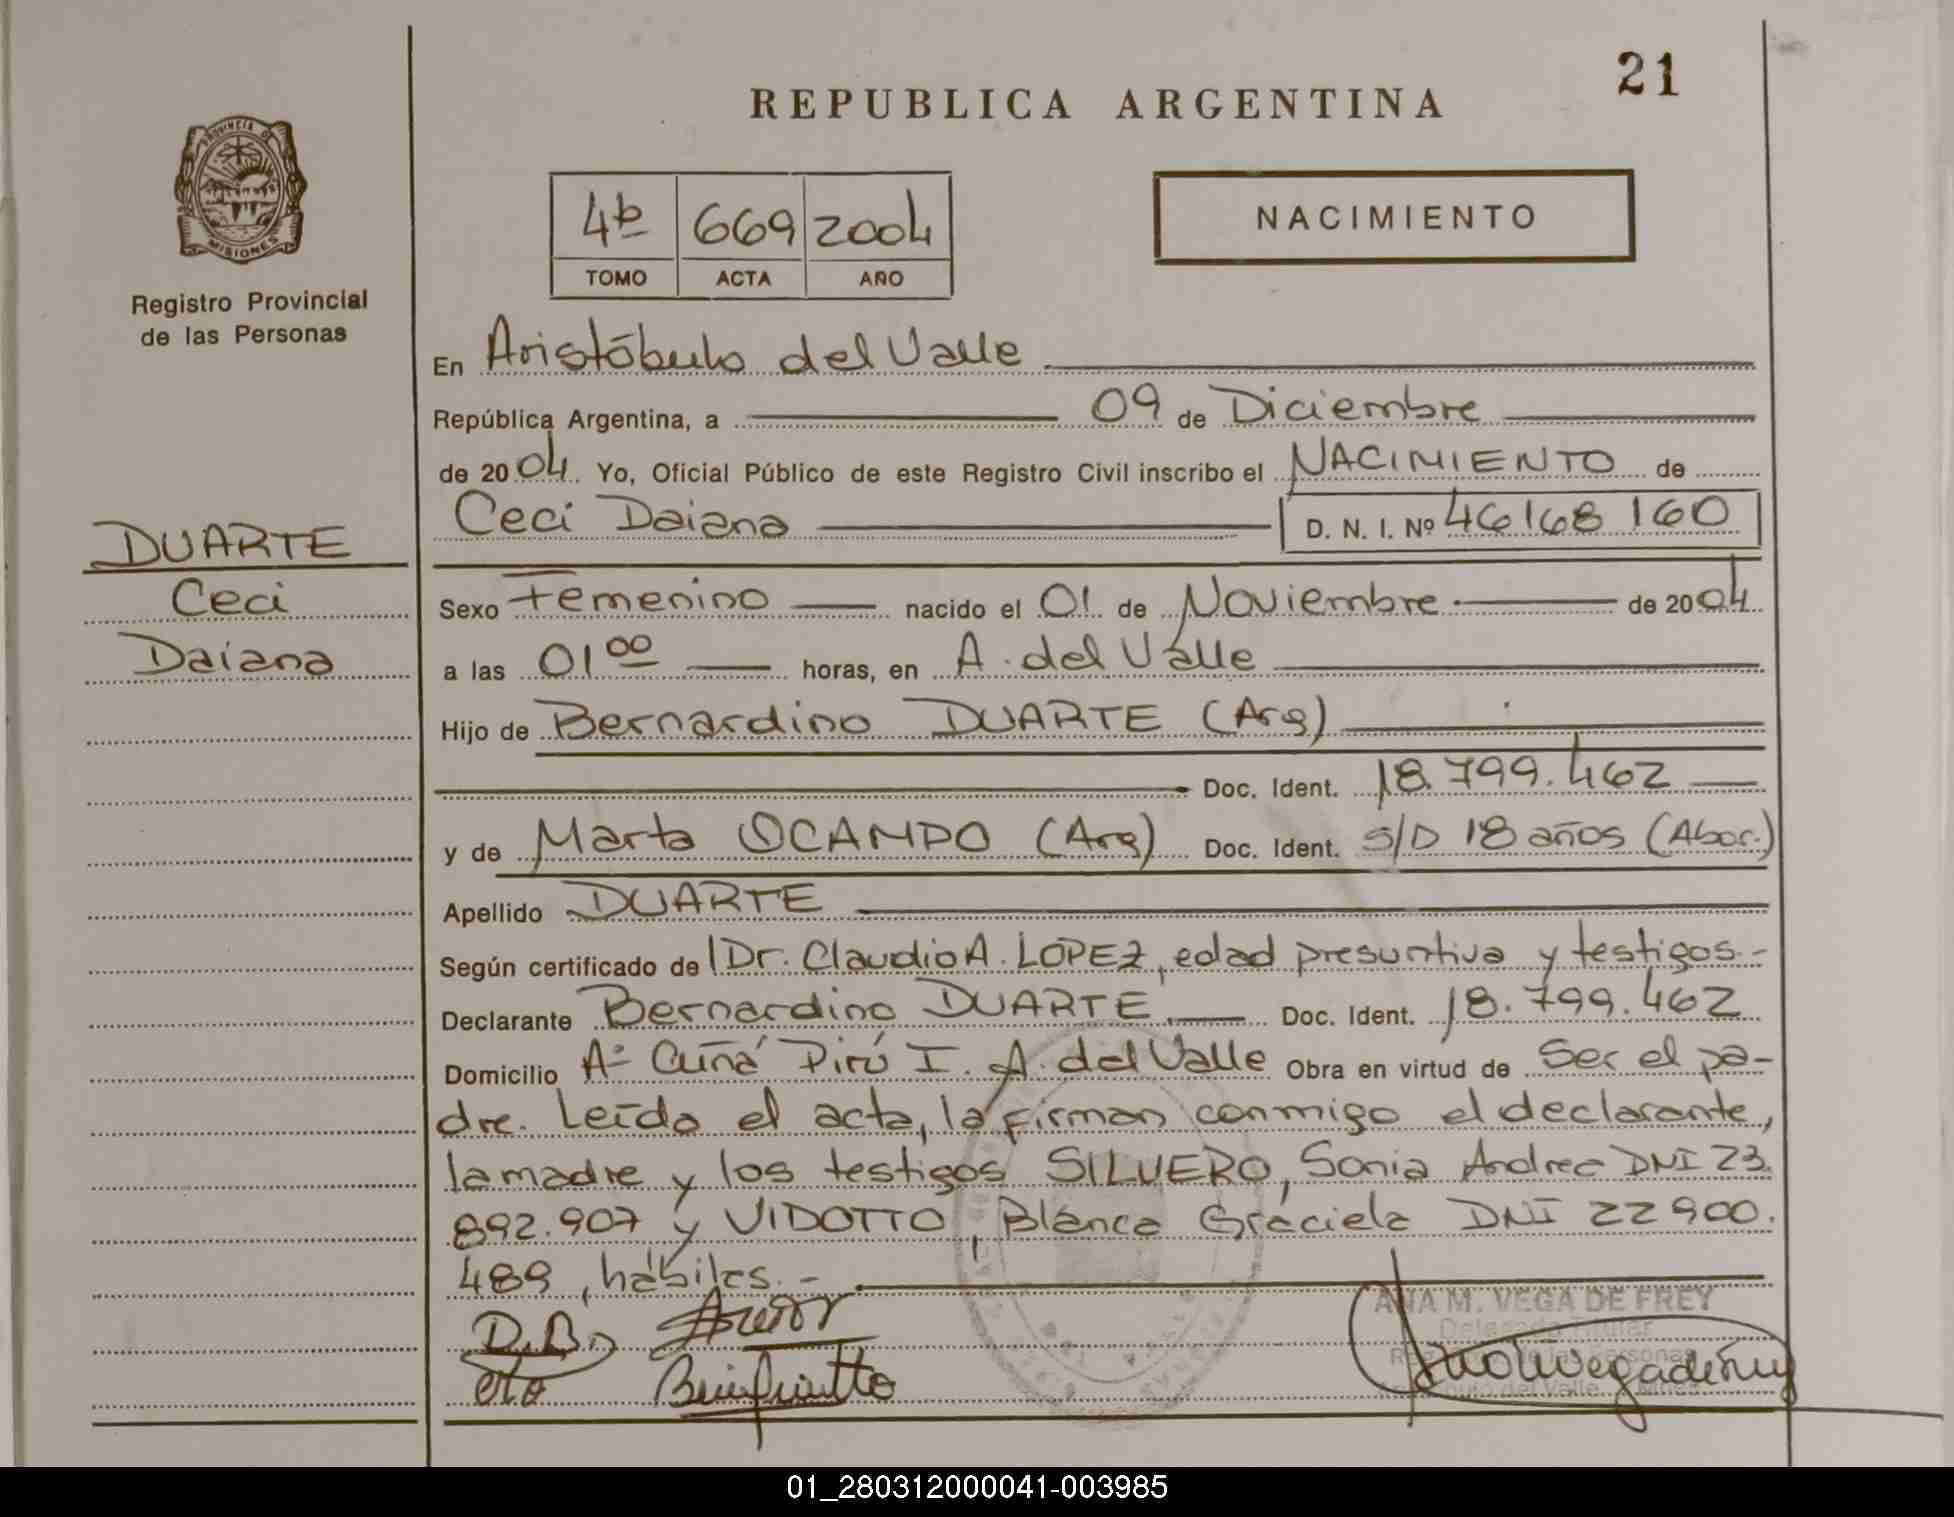 21
REPUBLICA ARGENTINA
PROVINCIA DE
MISIONES
Registro Provincial
de las Personas
4b 669 2004
TOMO ACTA AÑO
NACIMIENTO
En Aristóbulo del Valle
República Argentina, a 09 de Diciembre
de 2004. Yo, Oficial Público de este Registro Civil inscribo el NACIMIENTO de
Ceci Daiana D. N. I. Nº 46168160
DUARTE
Ceci
Daiana
Sexo Femenino nacido el 01 de Noviembre de 2004
a las 01 00 horas, en A. del Valle
Hijo de Bernardino DUARTE (Arg)
Doc. Ident. 18.799.462
y de Marta OCAMPO (Arg) Doc. Ident. S/D 18 años (Abor.)
Apellido DUARTE
Según certificado de Dr. Claudio A. LOPEZ, edad presuntiva y testigos.-
Declarante Bernardino DUARTE Doc. Ident. 18.799.462
Domicilio Aº Cuñá Pirú I. A. del Valle Obra en virtud de Ser el pa-
dre. Leída el acta, la firman conmigo el declarante,
la madre y los testigos SILVERO, Sonia Andrea DNI 23.
892.907 y VIDOTTO, Blanca Graciela DNI 22900.
489, hábiles.-
D.B.
ANA M. VEGA DE FREY
Delegada Titular
01_280312000041-003985